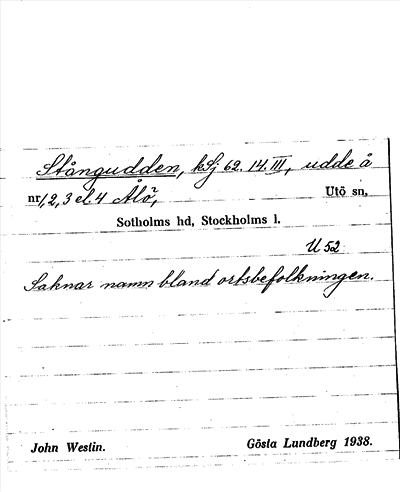 Stångudden, kSj 62. 14. III, udde å
nr 1, 2, 3 el. 4 Ålö, Utö sn,
Sotholms hd, Stockholms l.
U 52
Saknar namn bland ortsbefolkningen.
John Westin. Gösta Lundberg 1938.